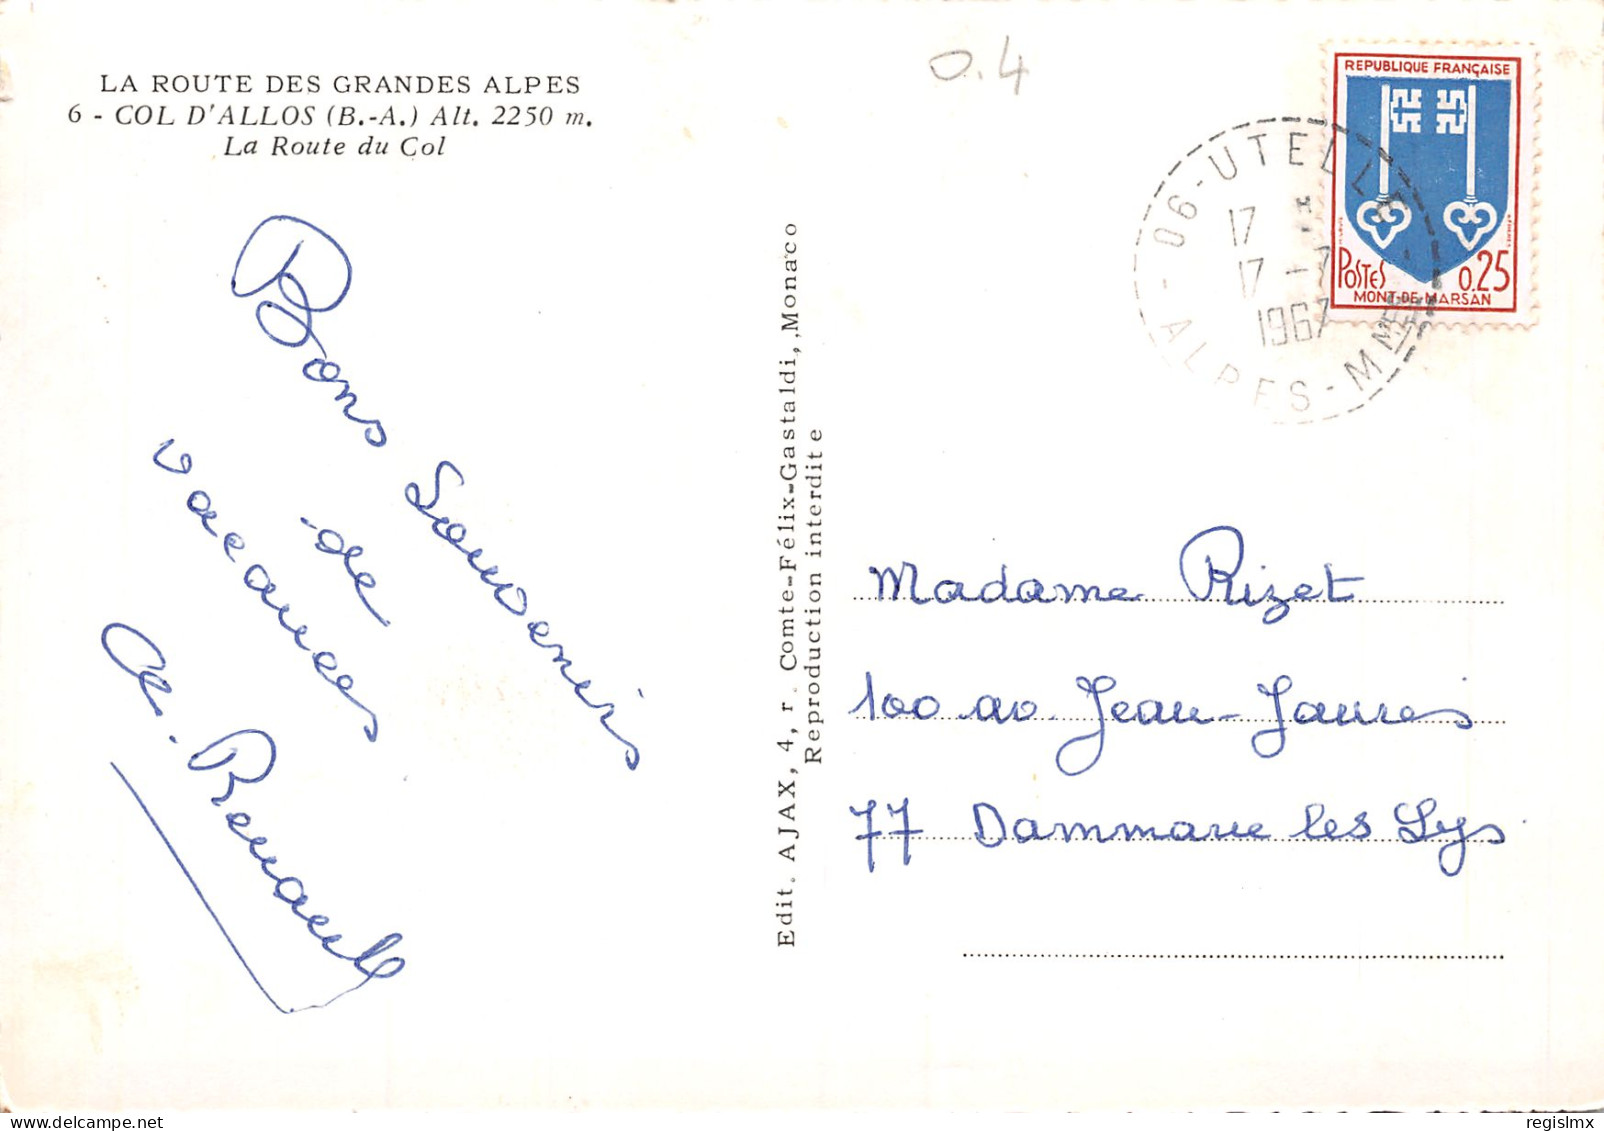 LA ROUTE DES GRANDES ALPES
6 - COL D'ALLOS (B.-A.) Alt. 2250 m.
La Route du Col
Bons Souvenirs
de
vacances
Renault
Edit. AJAX, 4, r. Comte-Félix-Gastaldi, Monaco
Reproduction interdite
0.4
REPUBLIQUE FRANÇAISE
POSTES 0.25
MONT-DE-MARSAN
06-UTELLE
17
17 -7
1967
ALPES-MMES
Madame Rizet
100 av Jean-Jaures
77 Dammarie les Lys
regislmx